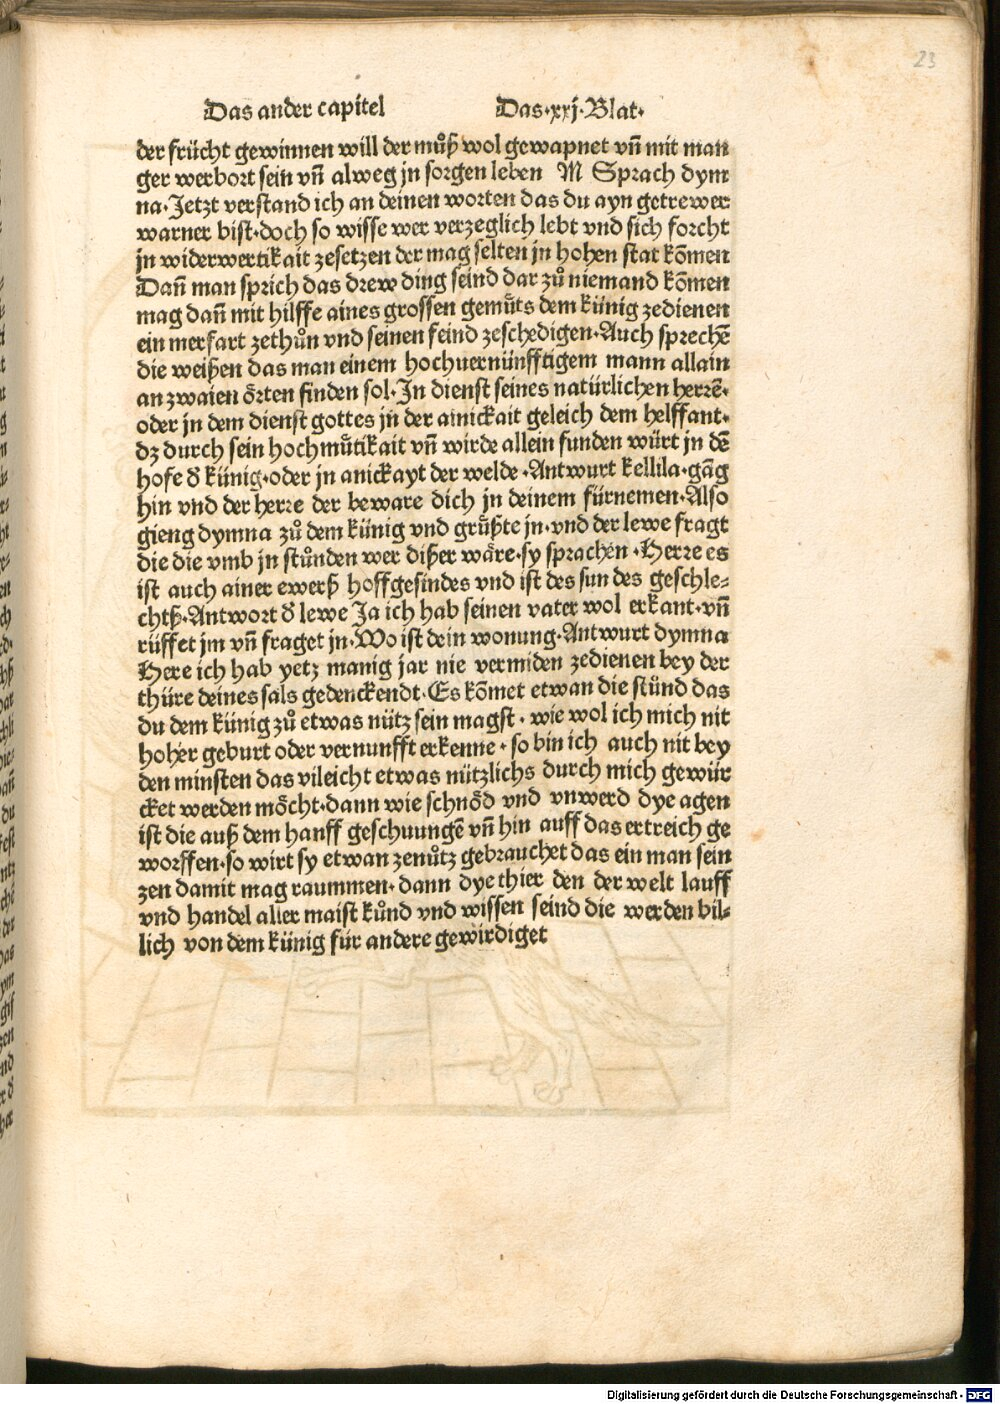 23
Das ander capitel Das·xxj·Blat·
der frücht gewinnen will der můß wol gewapnet vñ mit man
ger werbort sein vñ alweg jn sorgen leben M Sprach dym
na·Jetzt verstand ich an deinen worten das du ayn getrewer
warner bist·doch so wisse wer verzeglich lebt vnd sich forcht
jn widerwertikait zesetzen der mag selten jn hohen stat kõmen
Dañ man sprich das drew ding seind dar zů niemand kõmen
mag dañ mit hilffe aines grossen gemůts dem künig zedienen
ein merfart zethůn vnd seinen feind zeschedigen·Auch sprechẽ
die weißen das man einem hochuernünfftigem mann allain
an zwaien örten finden sol·In dienst seines natürlichen herrẽ·
oder jn dem dienst gottes jn der ainickait geleich dem helffant·
dz durch sein hochmůtikait vñ wirde allein funden würt jn dẽ
hofe d̕ künig·oder jn anickayt der welde·Antwurt kellila·gãg
hin vnd der herre der beware dich jn deinem fürnemen·Also
gieng dymna zů dem künig vnd grůßte jn·vnd der lewe fragt
die die vmb jn stůnden wer dißer wäre·sy sprachen·Herre es
ist auch ainer ewerß hoffgesindes vnd ist des sun des geschle⸗
chtß·Antwort d̕ lewe Ja ich hab seinen vater wol erkant·vñ
rüffet jm vñ fraget jn·Wo ist dein wonung·Antwurt dymna
Here ich hab yetz manig jar nie vermiden zedienen bey der
thüre deines sals gedenckendt·Es kõmet etwan die stůnd das
du dem künig zů etwas nütz sein magst·wie wol ich mich nit
hoher geburt oder vernunfft erkenne·so bin ich auch nit bey
den minsten das vileicht etwas nützlichs durch mich gewür
cket werden möcht·dann wie schnöd vnd vnwerd dye agen
ist die auß dem hanff geschuungẽ vñ hin auff das ertreich ge
worffen·so wirt sy etwan zenůtz gebrauchet das ein man sein
zen damit mag raummen·dann dye thier den der welt lauff
vnd handel aller maist kůnd vnd wissen seind die werden bil⸗
lich von dem künig für andere gewirdiget
Digitalisierung gefördert durch die Deutsche Forschungsgemeinschaft - DFG